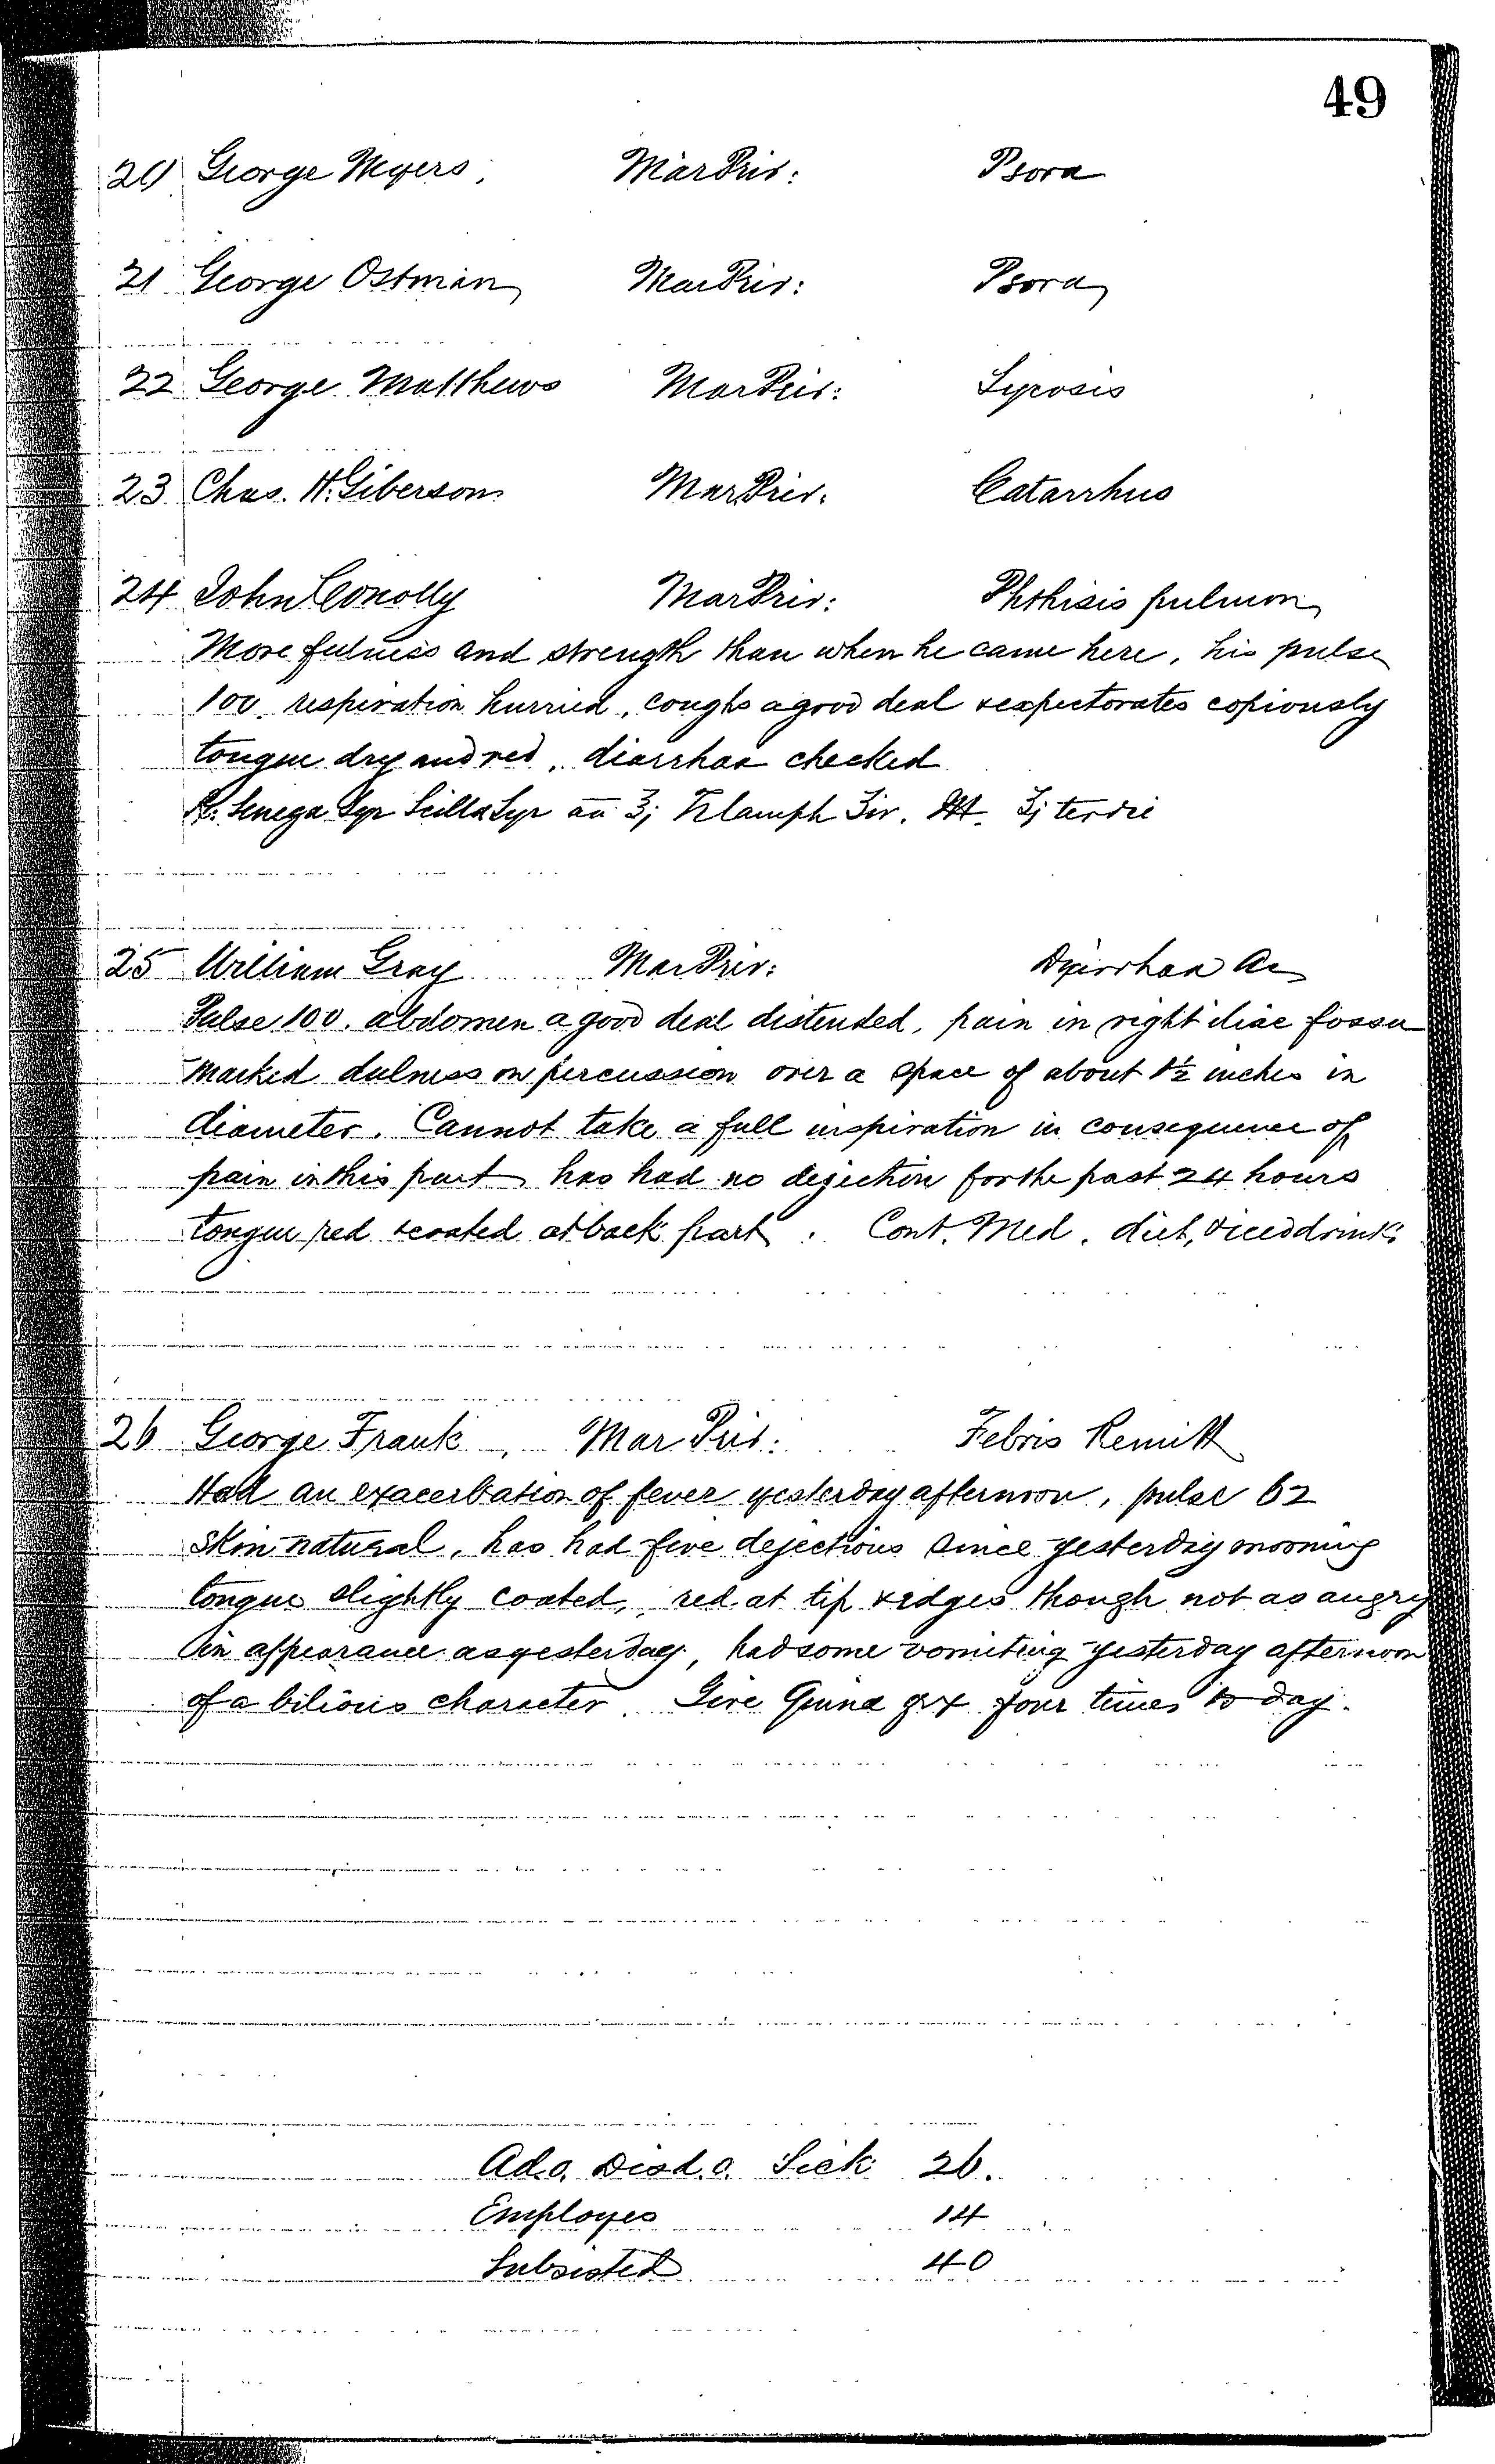 49
20 George Myers. Mar Priv: Psora
21 George Ostman Mar Priv: Psora
22 George Matthews Mar Priv: Sycosis
23 Chas. H. Giberson Mar Priv. Catarrhus
24 John Conolly Mar Priv: Phthisis pulmon
More fulness and strength than when he came here, his pulse
100, respiration hurried, coughs a good deal & expectorates copiously
tongue dry and red, diarrhœa checked
R. Senega Syr Scilla Syr aa ʒj ʒiv. M. ʒj ter die
25 William Gray Mar Priv: Diarrhœa Ac
Pulse 100. abdomen a good deal distended, pain in right iliac fossa
marked dulness on percussion over a space of about 1½ inches in
diameter. Cannot take a full inspiration in consequence of
pain in this part has had no dejection for the past 24 hours
tongue red & coated at back part. Cont. Med. diet, & iced drinks
26 George Frank, Mar Priv: Febris Remitt
Had an exacerbation of fever yesterday afternoon, pulse 62
skin natural, has had five dejections since yesterday morning
tongue slightly coated, red at tip & edges though not as angry
in appearance as yesterday, had some vomiting yesterday afternoon
of a bilious character. Give Quina grx four times to day.
Ad. o. Disd. o. Sick 26.
Employes 14
Subsisted 40